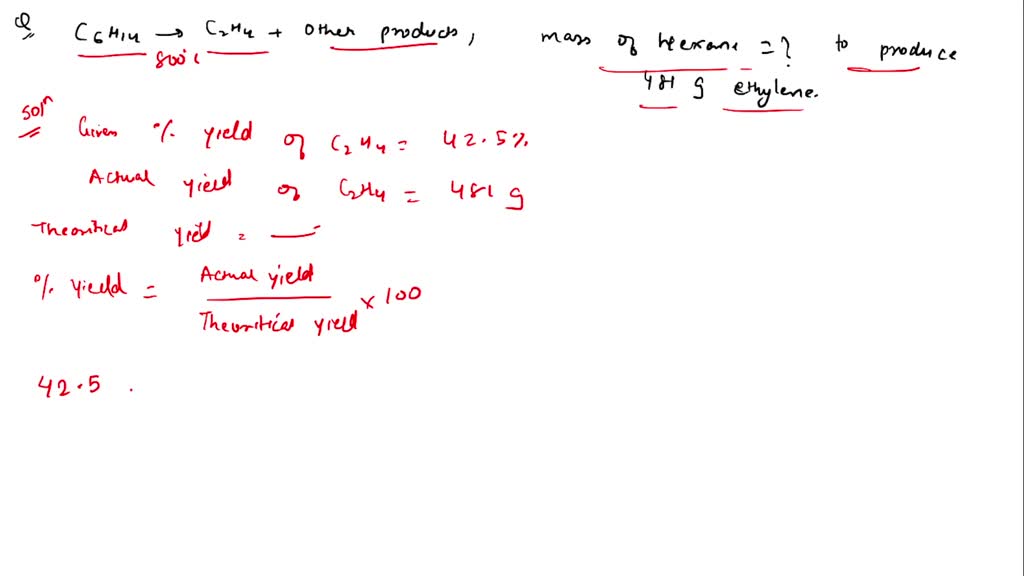 Q C6H14 → C2H4 + Other products, mass of hexane = ? to produce
800°C 481 g ethylene.
Soln Given % yield of C2H4 = 42.5%
Actual yield of C2H4 = 481 g
Theoritical yield = —
% yield = Actual yield / Theoritical yield × 100
42.5 .